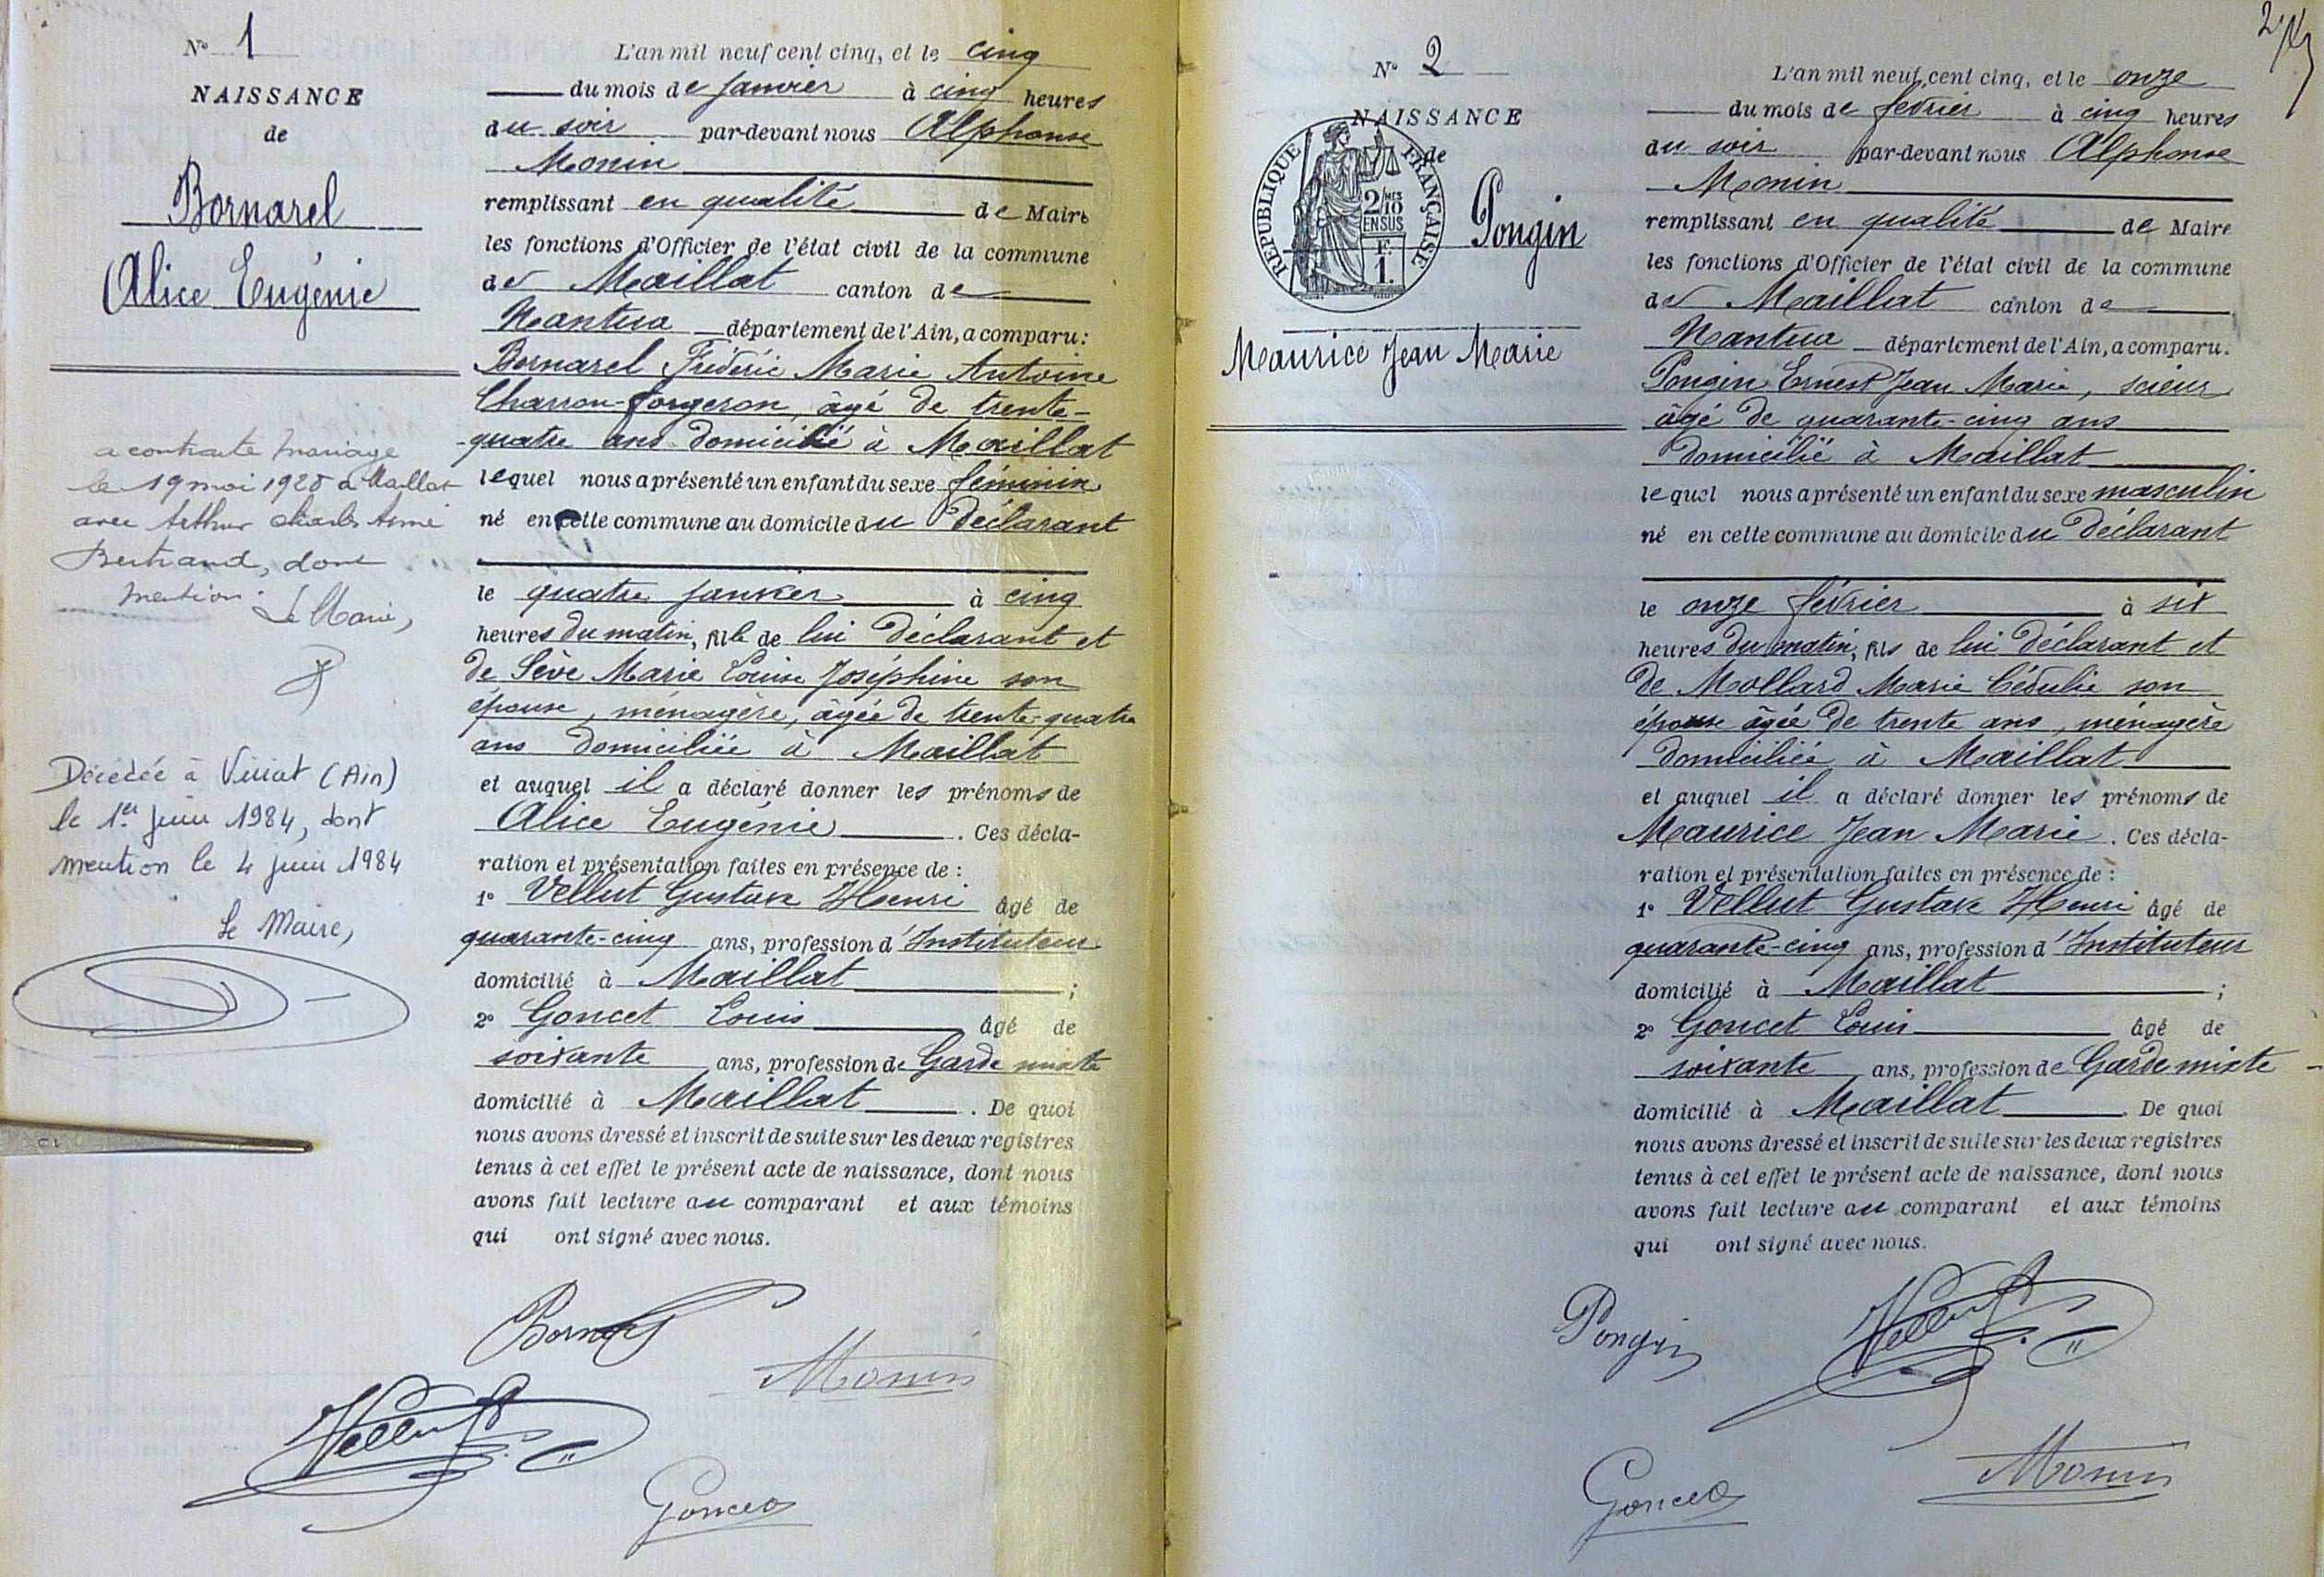 N° 1
NAISSANCE
de
Bornarel
Alice Eugénie
a contracté mariage
le 19 mai 1928 à Maillat
avec Arthur Charles Aimé
Bertrand, dont
mention.
Le Maire,
Décédée à Viriat (Ain)
le 1er juin 1984, dont
mention le 4 juin 1984
Le Maire,
L'an mil neuf cent cinq, et le cinq
du mois de Janvier à cinq heures
du soir par-devant nous Alphonse
Monin
remplissant en qualité de Maire
les fonctions d'Officier de l'état civil de la commune
de Maillat canton de
Nantua département de l'Ain, a comparu:
Bornarel Frédéric Marie Antoine
Charron-forgeron, âgé de trente-
quatre ans domicilié à Maillat
lequel nous a présenté un enfant du sexe féminin
né en cette commune au domicile du Déclarant
le quatre janvier à cinq
heures du matin, fille de lui Déclarant et
de Sève Marie Louise Joséphine son
épouse, ménagère, âgée de trente-quatre
ans domiciliée à Maillat
et auquel il a déclaré donner les prénoms de
Alice Eugénie. Ces décla-
ration et présentation faites en présence de :
1° Vellut Gustave Henri âgé de
quarante-cinq ans, profession d'Instituteur
domicilié à Maillat ;
2° Goncet Louis âgé de
soixante ans, profession de Garde mixte
domicilié à Maillat. De quoi
nous avons dressé et inscrit de suite sur les deux registres
tenus à cet effet le présent acte de naissance, dont nous
avons fait lecture au comparant et aux témoins
qui ont signé avec nous.
Bornarel
Monin
Vellut
Goncet
N° 2
NAISSANCE
de
REPUBLIQUE FRANÇAISE
2/10 MES
EN SUS
F.
1.
Pongin
Maurice Jean Marie
L'an mil neuf cent cinq, et le onze
du mois de février à cinq heures
du soir par-devant nous Alphonse
Monin
remplissant en qualité de Maire
les fonctions d'Officier de l'état civil de la commune
de Maillat canton de
Nantua département de l'Ain, a comparu:
Pongin Ernest Jean Marie, scieur
âgé de quarante-cinq ans
domicilié à Maillat
lequel nous a présenté un enfant du sexe masculin
né en cette commune au domicile du Déclarant
le onze février à six
heures du matin, fils de lui Déclarant et
de Mollard Marie Cédulie son
épouse âgée de trente ans, ménagère
domiciliée à Maillat
et auquel il a déclaré donner les prénoms de
Maurice Jean Marie. Ces décla-
ration et présentation faites en présence de :
1° Vellut Gustave Henri âgé de
quarante-cinq ans, profession d'Instituteur
domicilié à Maillat ;
2° Goncet Louis âgé de
soixante ans, profession de Garde mixte
domicilié à Maillat. De quoi
nous avons dressé et inscrit de suite sur les deux registres
tenus à cet effet le présent acte de naissance, dont nous
avons fait lecture au comparant et aux témoins
qui ont signé avec nous.
Pongin
Vellut
Goncet
Monin